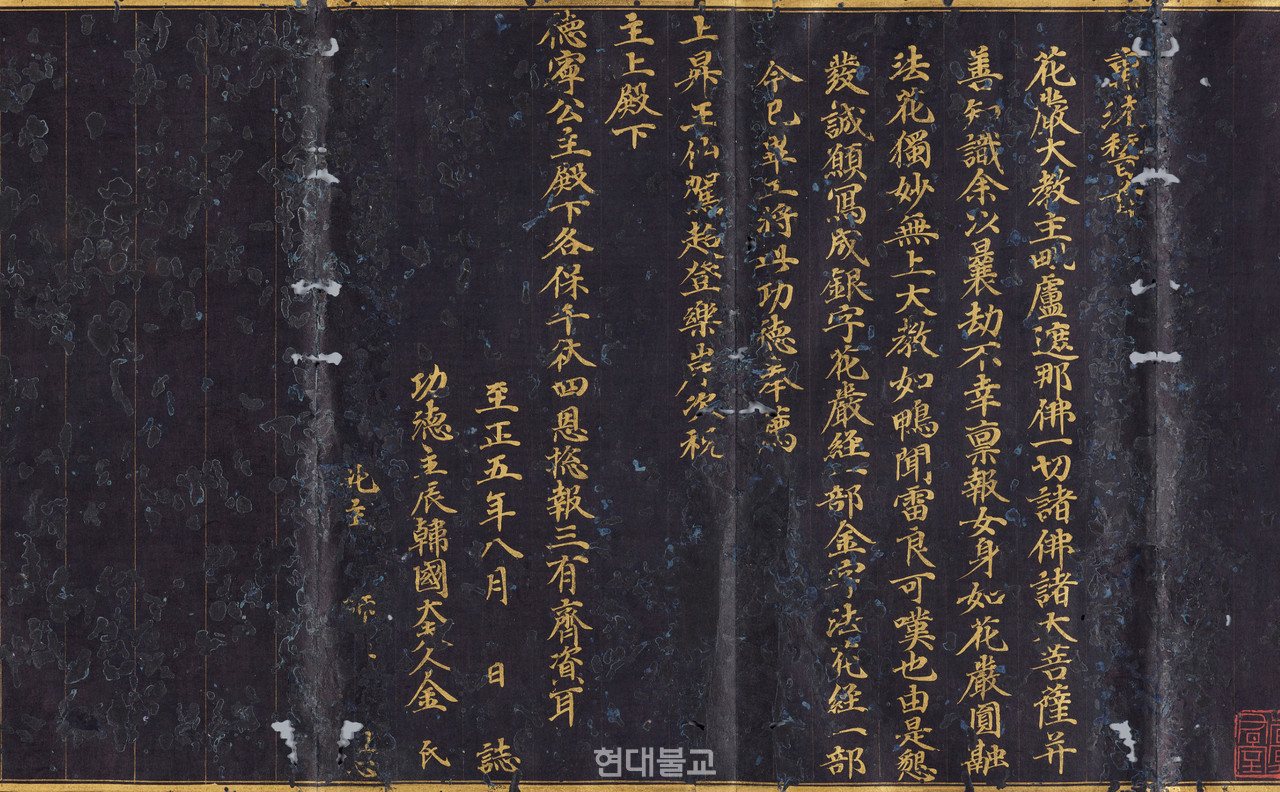 花嚴大教主毗盧遮那佛一切諸佛諸大菩薩并
善知識余以曩劫不幸禀報女身如花嚴圓融
法花獨妙無上大教如鴨聞雷良可嘆也由是懇
發誠願寫成銀字花嚴経一部金字法花経一部
今已畢工將此功德奉薦
上昇王仙駕超登樂岸次祝
主上殿下
德寧公主殿下各保千秋四恩捴報三有齊資耳
至正五年八月 日 誌
功德主辰韓國大夫人金 氏
化主
현대불교